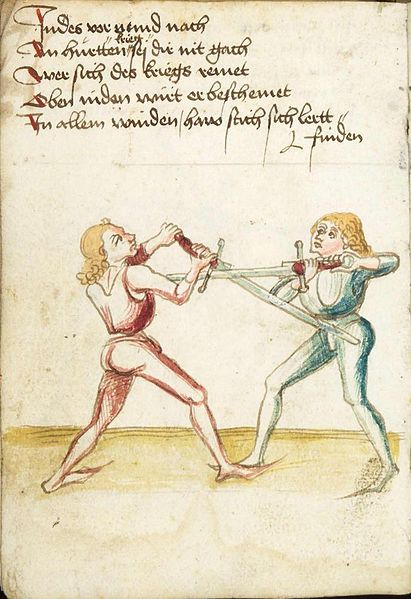 Indes vor vnnd nach
krieg
An hürtten sej dir nit gach
Wer sich des kriegs remet
Oben niden würt er beschemet
In allem winden / haw stich sich lertt
finden